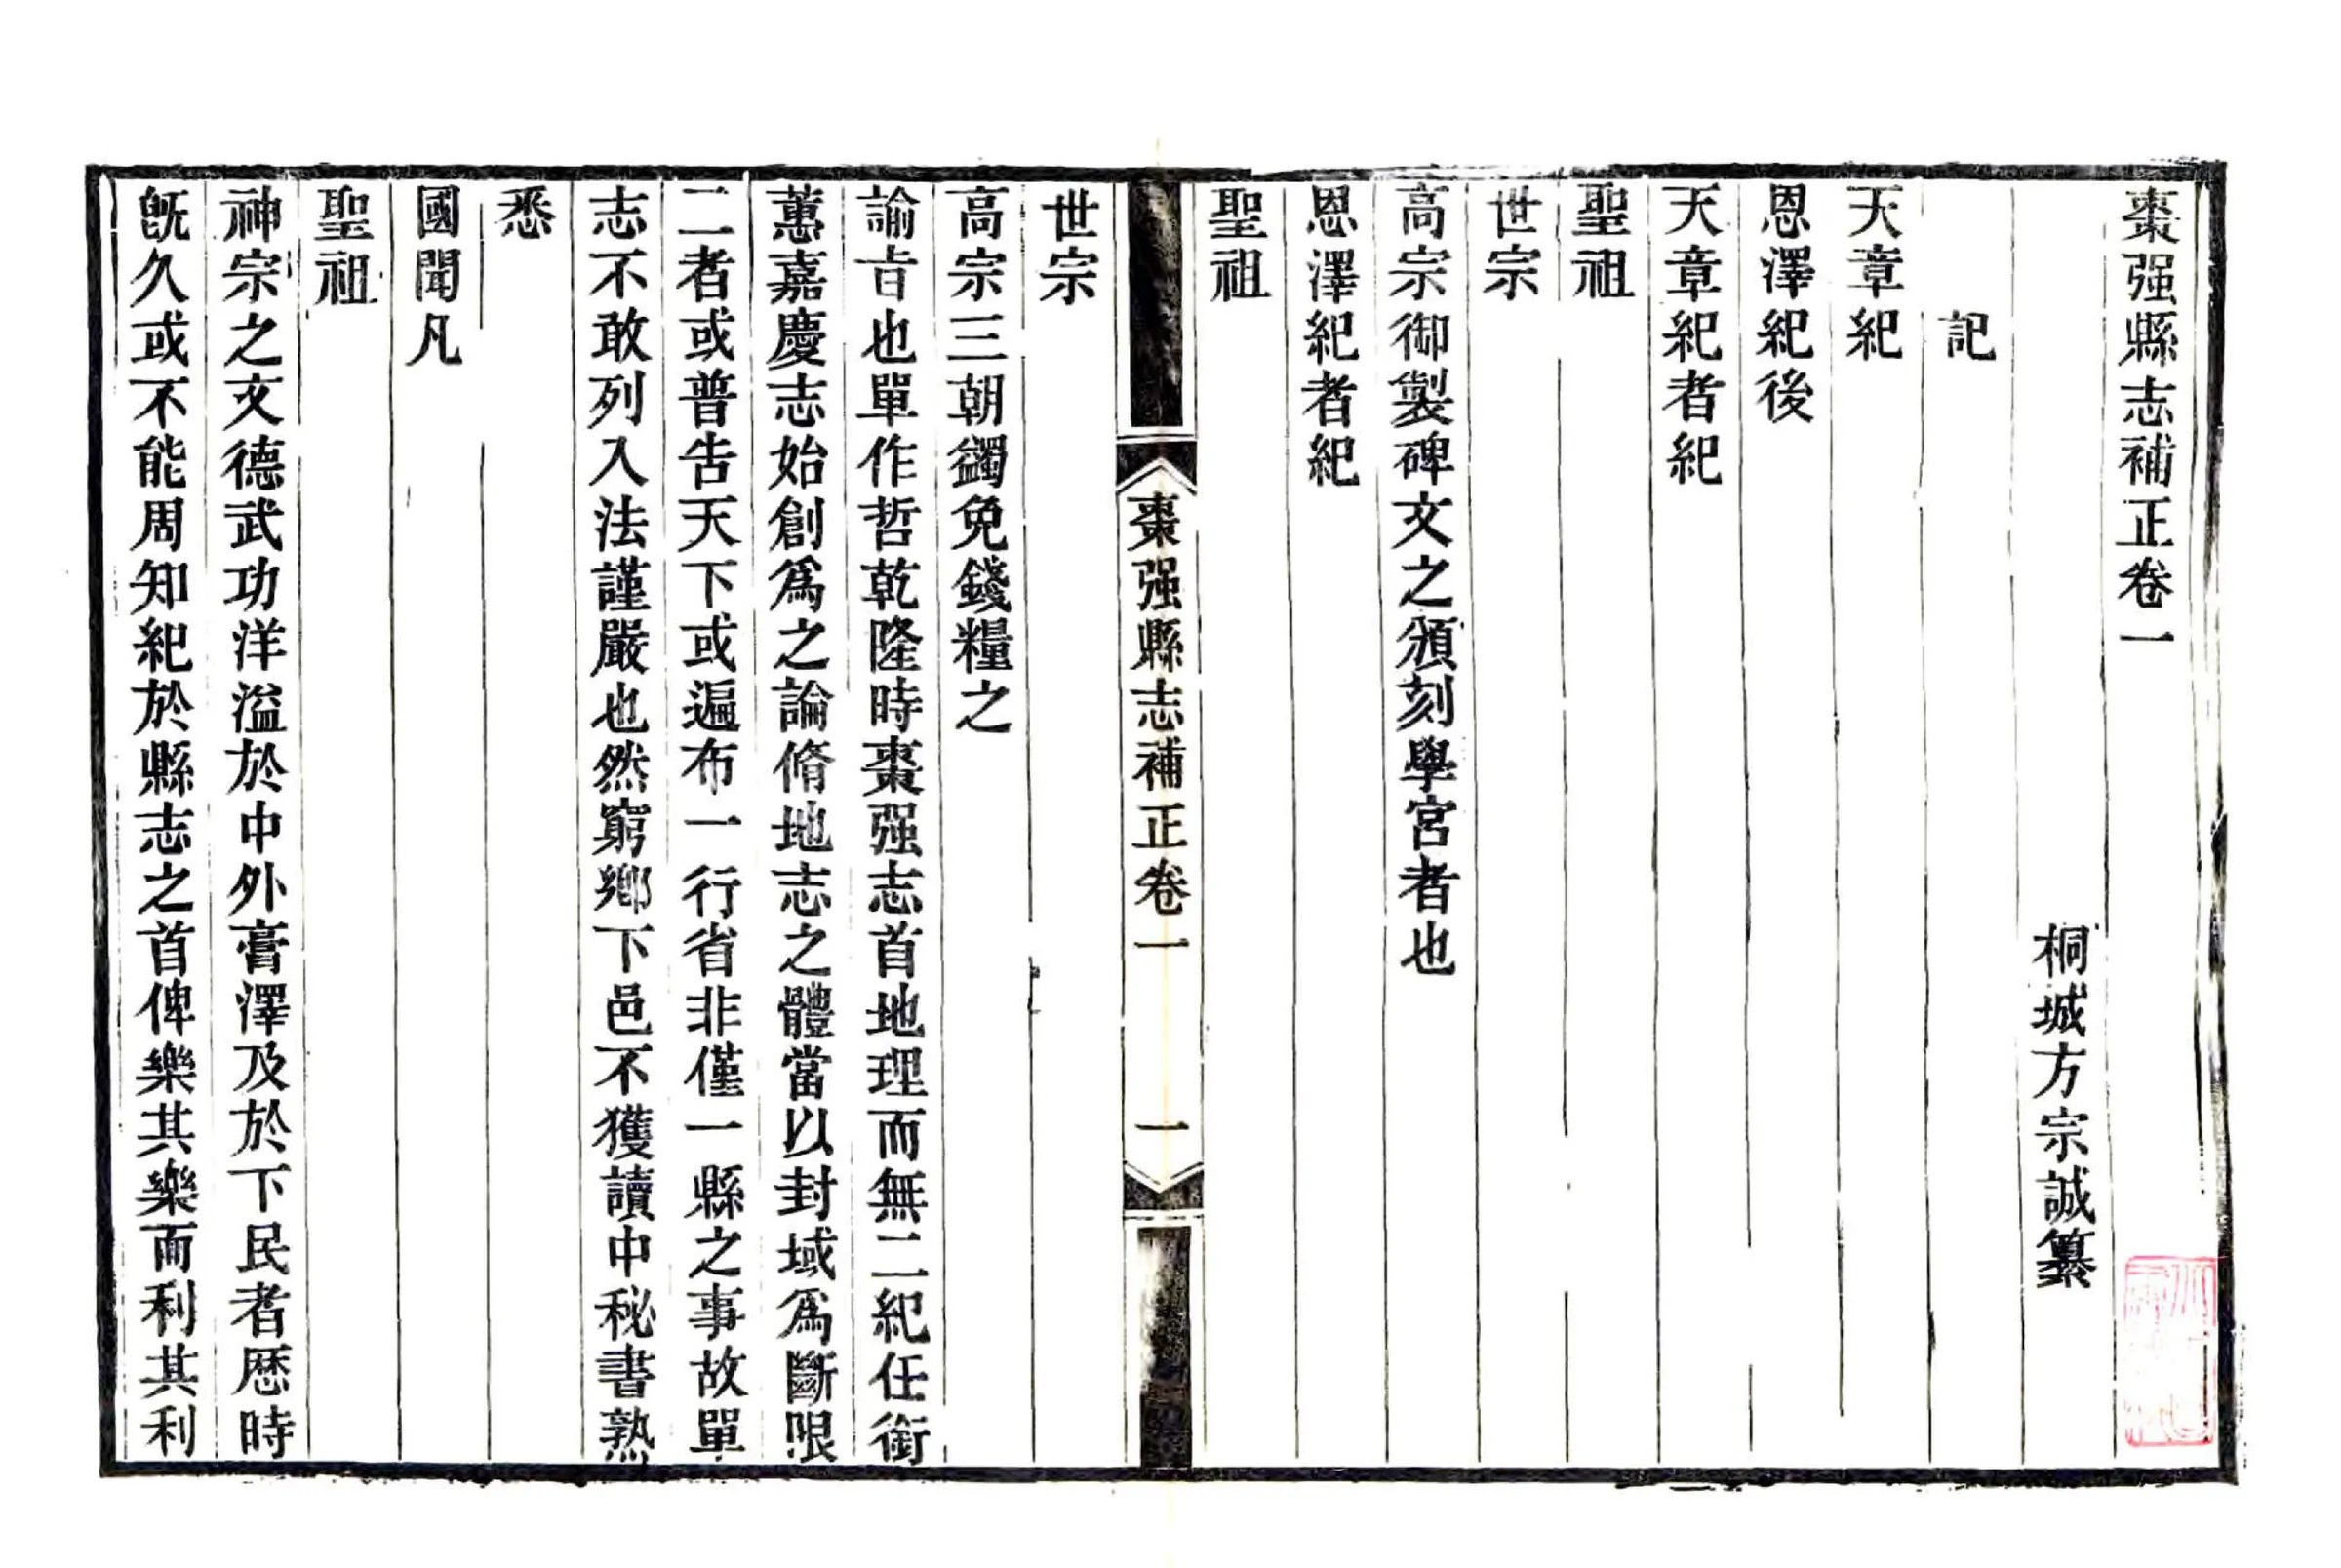 棗强縣志補正卷一
桐城方宗誠纂
記
天章紀
恩澤紀後
天章紀者紀
聖祖
世宗
高宗御製碑文之頒刻學宮者也
恩澤紀者紀
聖祖
棗强縣志補正卷一 一
世宗
高宗三朝蠲免錢糧之
諭旨也單作哲乾隆時棗强志首地理而無二紀任銜
蕙嘉慶志始創爲之論脩地志之體當以封域爲斷限
二者或普告天下或遍布一行省非僅一縣之事故單
志不敢列入法謹嚴也然窮鄉下邑不獲讀中秘書熟
悉
國聞凡
聖祖
神宗之文德武功洋溢於中外膏澤及於下民者歷時
旣久或不能周知紀於縣志之首俾樂其樂而利其利